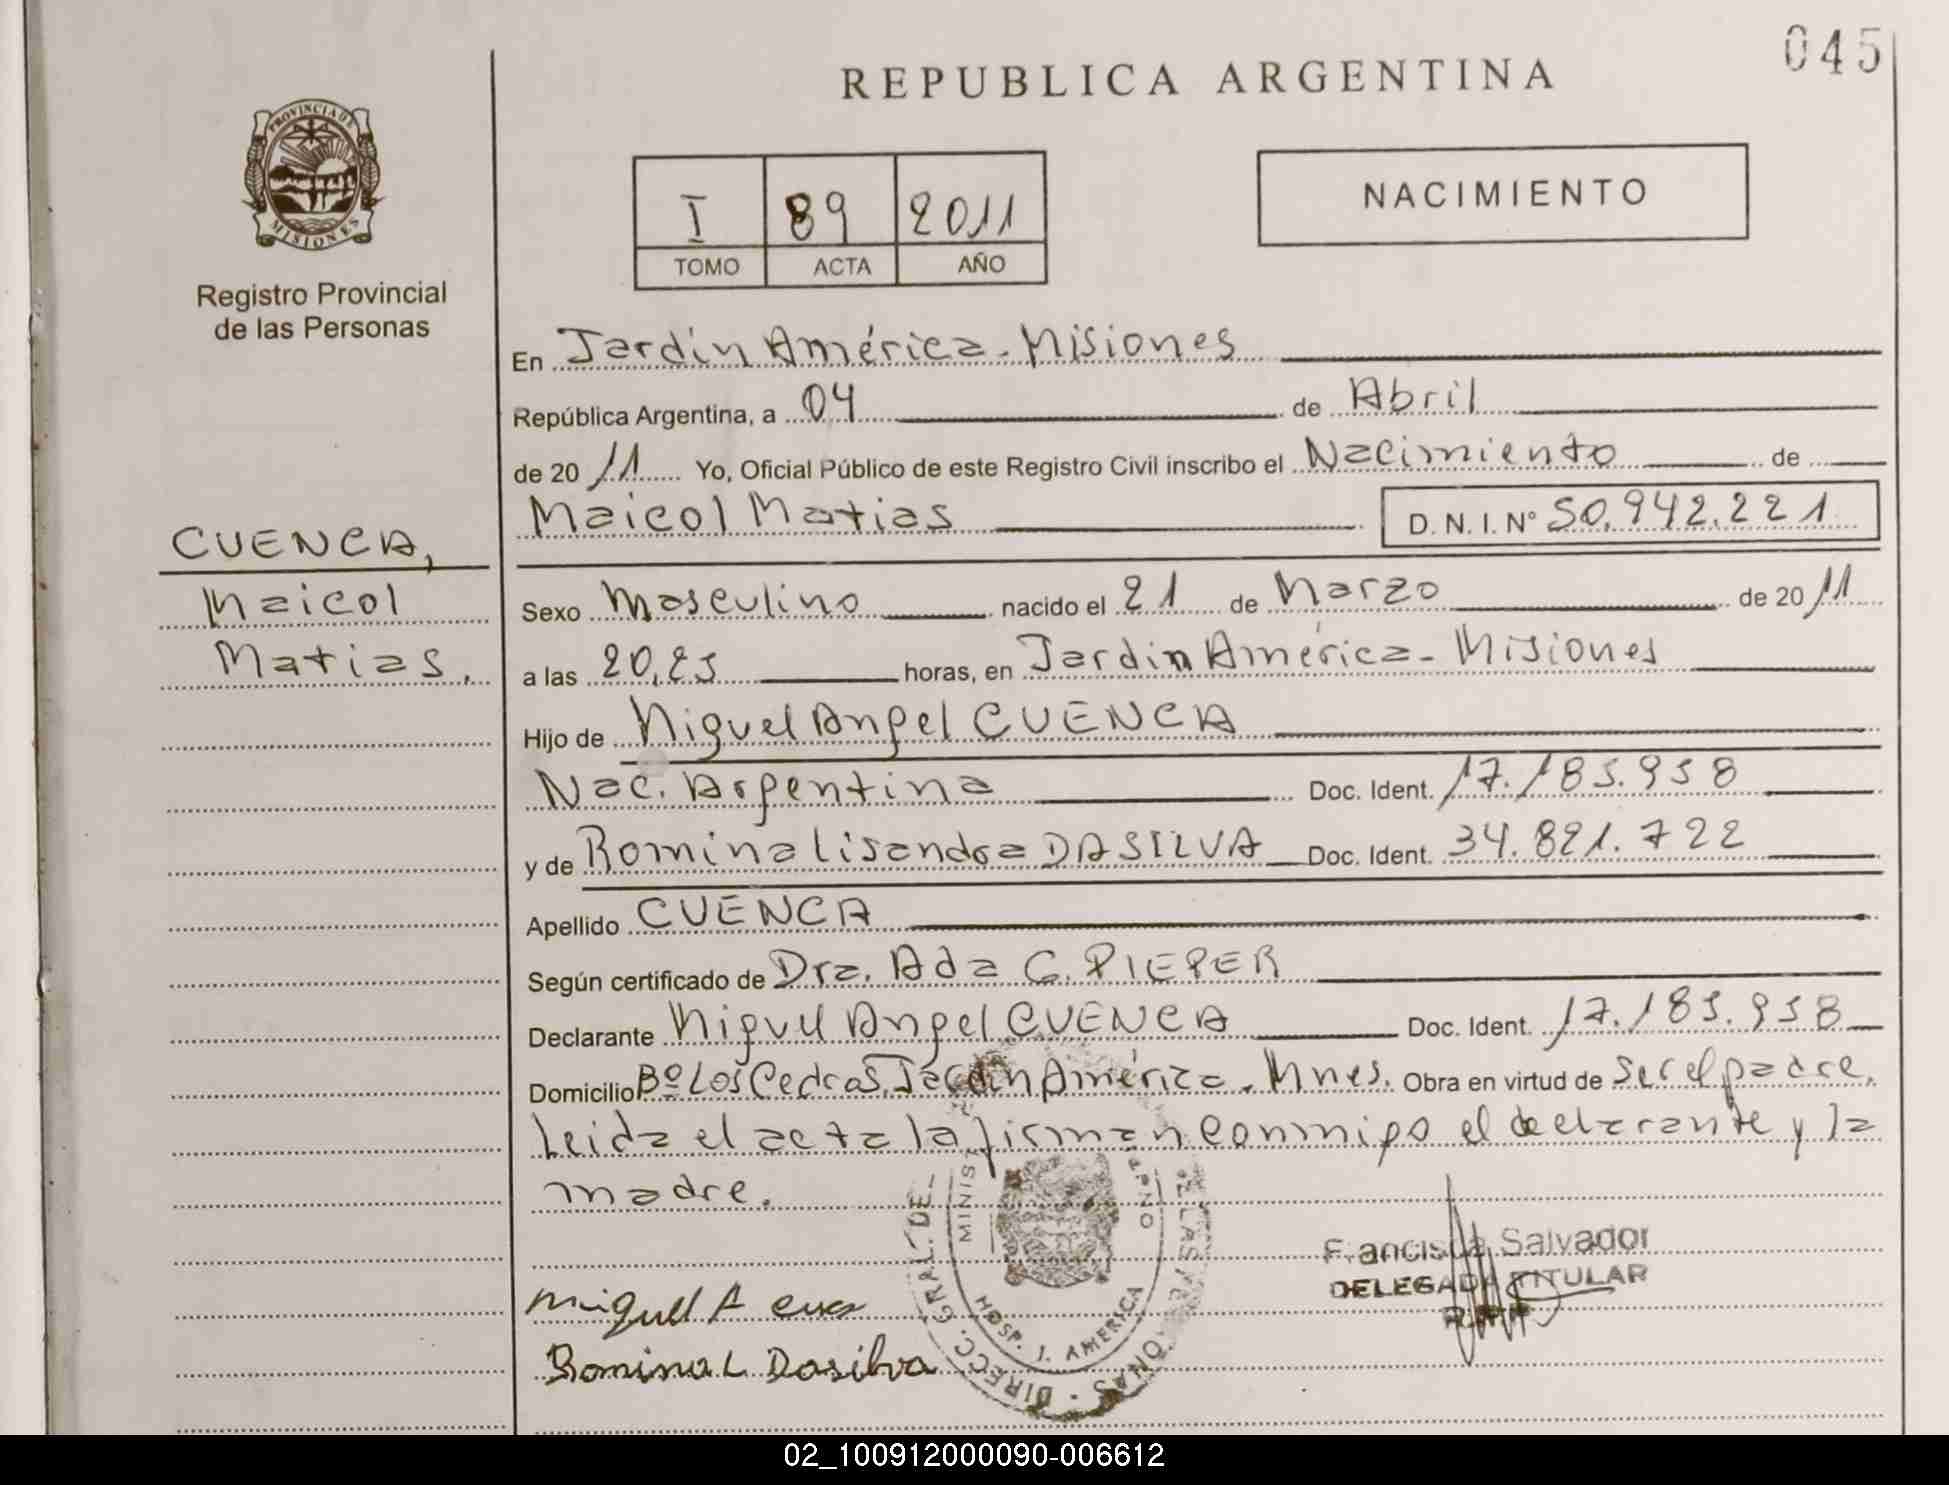 045
REPUBLICA ARGENTINA
PROVINCIA DE
MISIONES
Registro Provincial
de las Personas
I 89 2011
TOMO ACTA AÑO
NACIMIENTO
En Jardín América - Misiones
República Argentina, a 04 de Abril
de 2011 Yo, Oficial Público de este Registro Civil inscribo el Nacimiento de
Maicol Matias D.N.I. Nº 50.942.221
CUENCA,
Maicol
Matias,
Sexo Masculino nacido el 21 de Marzo de 2011
a las 20,25 horas, en Jardin América - Misiones
Hijo de Miguel Angel CUENCA
Nac. Argentina Doc. Ident. 17.185.958
y de Romina Lisandra DASILVA Doc. Ident. 34.821.722
Apellido CUENCA
Según certificado de Dra. Ada G. PIEPER
Declarante Miguel Angel CUENCA Doc. Ident. 17.185.958
Domicilio Bº Los Cedros. Jardín América. Mnes. Obra en virtud de ser el padre.
Leida el acta la firman conmigo el declarante y la
madre.
Francisca Salvador
DELEGADA TITULAR
R.P.P.
Miguel A
Romina L Dasilva
DIRECC. GRAL. DE LAS
HOSP. J. AMERICA
02_100912000090-006612